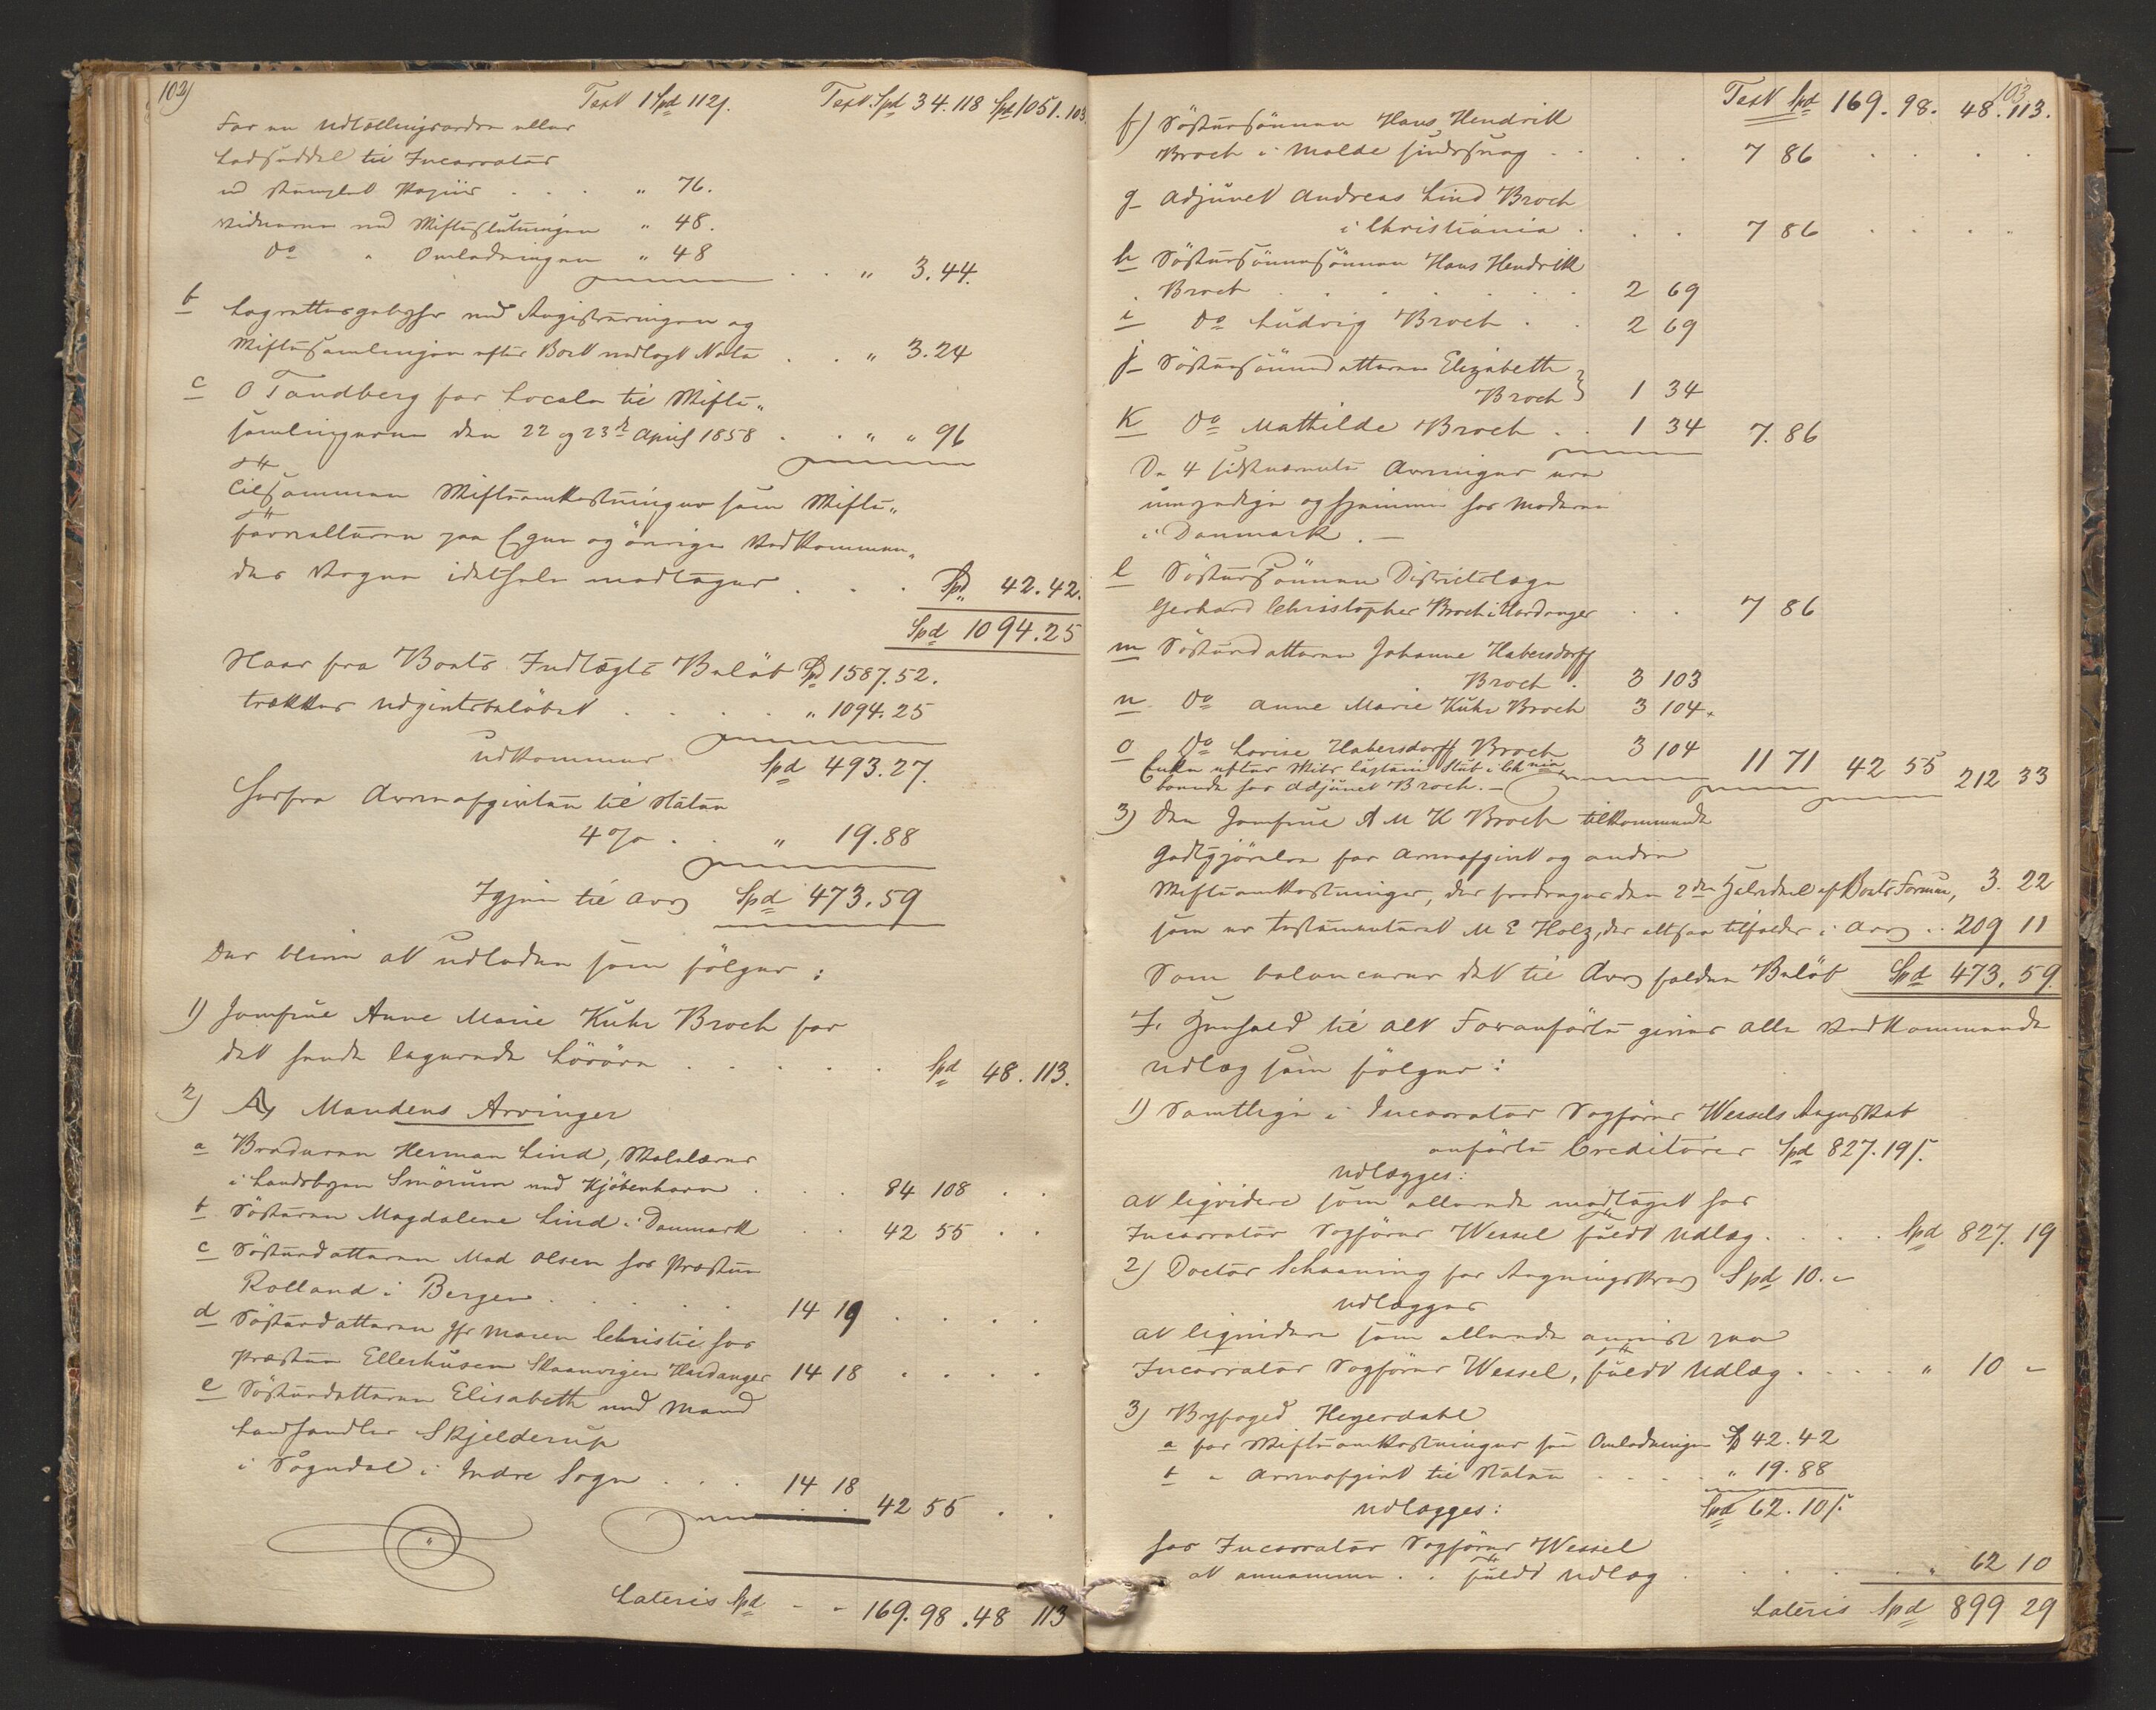 102)
Tspt 1 Spd 112/. Tspt. Spd 34.118 Spd 1051.103.
For en Udlællingsordre eller
Ladseddel til Incassator
ud stemplet Papiir . . . " 76.
Vidnerne ved Skifteslutningen " 48.
Do " Omladningen " 48
. . " 3.44.
b Lagrettesgebyhr ved Registreringen og
Skiftesamlingen efter Bort nedlagt Nota . . " 3.24
c O Tandberg for Locale til Skifte„
samlingerne den 22 og 23de April 1858 . . " " 96
tilsammen Skifteomkostninger som Skifte„
forvalteren paa Egne og øvrige Vedkommen„
des Vegne idethele modtager . . . Spd„ 42.42.
Spd 1094.25
Naar fra Boets Indtægts Beløb Spd 1587.52.
trækkes Udgiftsbeløbet . . . . " 1094.25
udkommer Spd 493.27.
Herfra Arveafgiften til Staten
4 % . . " 19.88
Igjen til Arv Spd 473.59
Der blive at udlodde som følger:
1) Jomfrue Anne Marie Kuhr Broch for
det hende legerede Løsøre . . . . . Spd 48.113.
2) Mandens Arvinger
a Broderen Herman Lind, Skolelærer
i Landsbyen Smörum ved Kjöbenhavn . . . 84 108 . .
b Søsteren Magdalene Lind i Danmark . . 42 55 . .
c Søsterdatteren Mad Olsen hos Presten
Rolland i Bergen . . . . . 14 19 . . . .
d Søsterdatteren Jfr Maren Christie hos
Presten Ellerhusen Skaanvigen Hardanger 14 18 . . . .
e Søsterdatteren Elisabeth med Mand
Landhandler Skjelderup
i Sogndal i Indre Sogn . . . 14 18
42 55 . .
Lateris Spd - - 169.98.48 113
103
Tspt Spd 169.98. 48.113.
f) Søstersønnen Hans Hendrik
Broch i Molde . . . . 7 86 . . . .
g Adjunct Andreas Lind Broch
i Christiania . . . 7 86 . . . .
h Søstersønnesønnen Hans Hendrik
Broch . . . . . . . 2 69
i Do Ludvig Broch . . 2 69
j Søstersønnedatteren Elizabeth
Broch 1 34
K Do Mathilde Broch . . 1 34 7.86
De 4 sidstnævnte Arvinger ere
umyndige og hjemme hos Moderen
i Danmark.–
l Søstersønnen Districtslæge
Gerhard Christopher Broch i Hardanger . . 7 86
m Søsterdatteren Johanne Habersdorff
Broch . 3 103
n Do Anne Marie Kuhr Broch 3 104.
o Do Lovise Habersdorff Broch 3 104
Enke efter Skibs Capitain Stub i Chnia
boende hos Adjunct Broch.– 11 71 42 55 212 33
3) Den Jomfrue A M K Broch tilkommende
Godtgjørelse for Arveafgift og andre
Skifteomkostninger, der fradrages den 2den Halvdeel af Boets Formue, 3. 22
som er testamenteret M E Holz, der altsaa tilfalder i Arv . . 209 11
Som balancerer det til Arv faldne Beløb Spd 473.59.
I Henhold til alt Foranførte gives alle Vedkommende
Udlæg som følger:
1) Samtlige i Incassator Sagfører Wessels Regnskab
anførte Creditorer Spd 827.19/.
udlægges:
at liqvidere som allerede modtaget hos
Incassator Sagfører Wessel fuldt Udlæg . . . . Spd 827. 19
2) Doctor Schaaning for Regningskrav Spd 10.–
udlægges
at liqvidere som allerede anvist paa
Incassator Sagfører Wessel, fuldt Udlæg . . . . " 10 –
3) Byfoged Heyerdahl
a for Skifteomkostninger som Omladningen Spd 42.42
b " Arveafgift til Staten . . . . " 19.88
udlægges: Spd 62.10/.
hos Incassator Sagfører Wessel
at annamme . . fuldt Udlæg . . . . . " 62 10
Lateris Spd 899 29